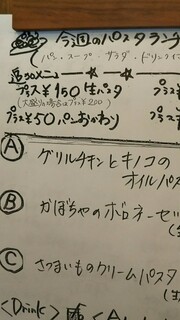 今週のパスタラン
パン・スープ・サラダ・ドリンク
追加メニュー ☆ ☆
プラス¥150 生パスタ プラス
(大盛りの場合はプラス¥200)
プラス¥50 パンおかわり プラス¥
A グリルチキンとキノコの
オイルパス
B かぼちゃのボロネーゼ
C さつまいものクリームパスタ
(生
<Drink>